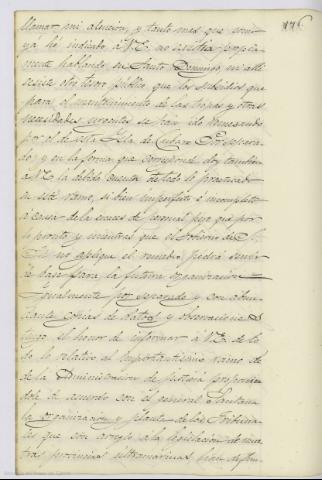 176
llamar mi atencion, y tanto mas que como
ya he indicado à V.E. no existia propia-
mente hablando en Santo Domingo, ni allí
existia otro tesoro público que los subsidios que
para el mantenimiento de las tropas y otras
necesidades urgentes se han ido
por el de esta Isla de Cuba. Por separa-
do, y en la forma que corresponde doy tambien
à V.E. la debida cuenta de todo lo practicado
en este ramo, si bien imperfecto é incompleto
à causa de la escases de personal pero que por
lo pronto y mientras que el Gobierno de S.
M. no aplique el remedio podrá servir
de base para la futura organizacion.
Igualmente por separado y con abun-
dante copia de datos y observaciones
tengo el honor de informar à V.E. de to-
do lo relativo al importantisimo ramo de
de la Administracion de justicia proponien-
dole de acuerdo con el general Santana
la organizacion y planta de los Tribuna-
les que con arreglo à la legislacion de nues-
tras provincias ultramarinas